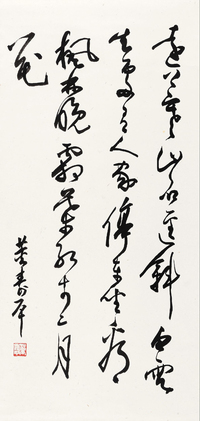 遠上寒山石徑斜白雲
生處有人家停車坐愛
楓林晚霜葉紅于二月
花
董壽平